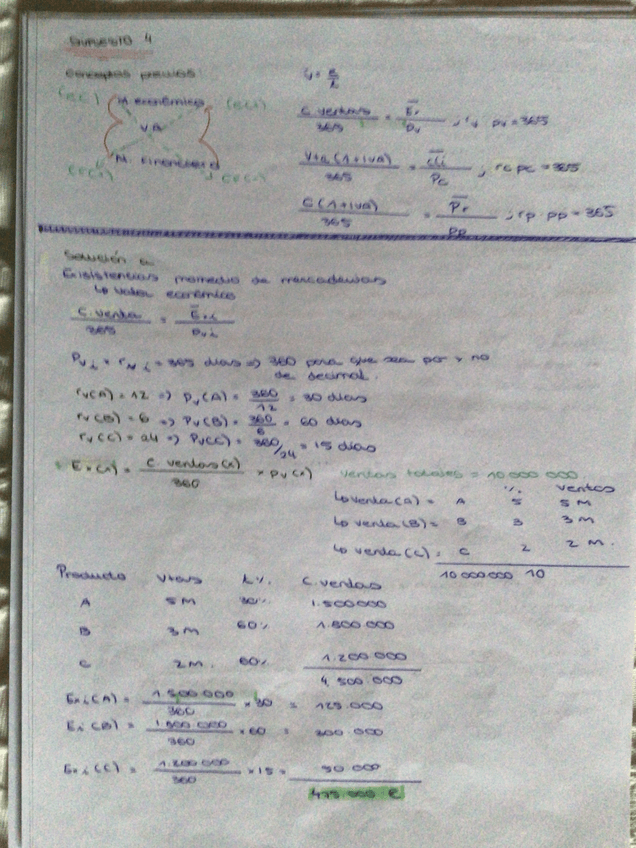 SUPUESTO 4
Conceptos previos:
M. económico
V A
M. Financiero
C. ventas / 365 = Ex / pv ; rv pv = 365
Vta (1+IVA) / 365 = cli / Pc ; rc pc = 365
C (1+IVA) / 365 = Pr / pp ; rp pp = 365
Solución a
Existencias promedio de mercaderías
↳ Valor económico
C. venta / 365 = Exi / pvi
365 días => 360 para que sea por y no
de decimal.
rv(A) = 12 => pv(A) = 360 / 12 = 30 días
rv(B) = 6 => Pv(B) = 360 / 6 = 60 días
rv(C) = 24 => Pv(C) = 360/24 = 15 días
Ex(x) = C. ventas(x) / 360 × pv(x) ventas totales = 10 000 000
% ventas
↳ venta (A) = A 5 5 M
↳ venta (B) = B 3 3 M
↳ venta (C) = C 2 2 M.
10 000 000 10
Producto Vtas % C. ventas
A 5 M 30% 1.500.000
B 3 M 60% 1.800.000
C 2 M. 60% 1.200.000
4.500.000
Exi (A) = 1.500.000 / 360 × 30 = 125.000
Exi (B) = 1.800.000 / 360 × 60 = 300.000
Exi (C) = 1.200.000 / 360 × 15 = 50.000
475.000 €